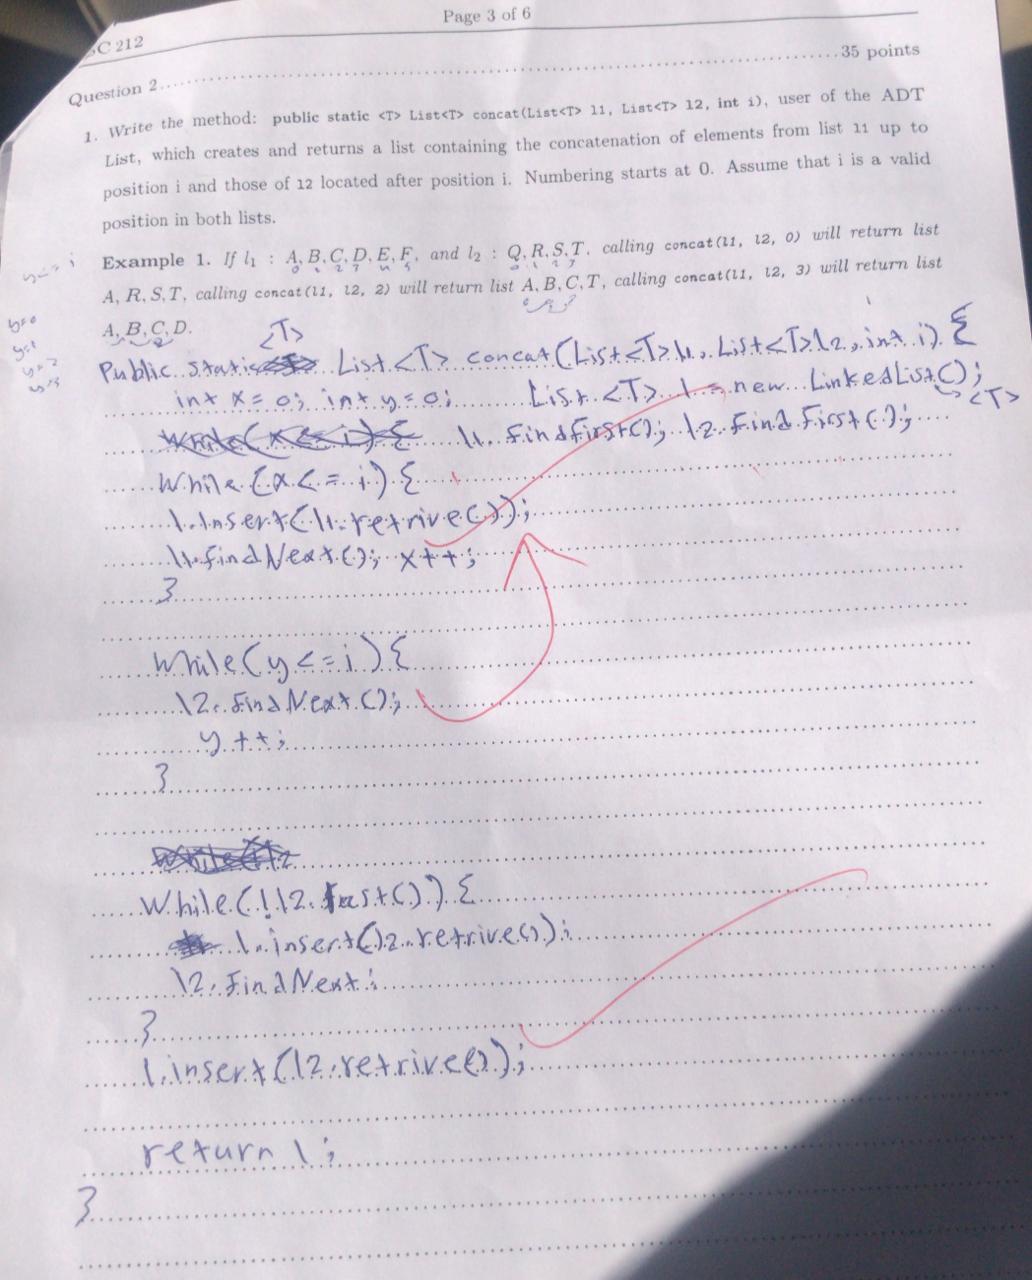 Page 3 of 6
SC 212
Question 2 35 points
1. Write the method: public static <T> List<T> concat(List<T> l1, List<T> l2, int i), user of the ADT
List, which creates and returns a list containing the concatenation of elements from list l1 up to
position i and those of l2 located after position i. Numbering starts at 0. Assume that i is a valid
position in both lists.
Example 1. If l1 : A, B, C, D, E, F, and l2 : Q, R, S, T, calling concat(l1, l2, 0) will return list
A, R, S, T, calling concat(l1, l2, 2) will return list A, B, C, T, calling concat(l1, l2, 3) will return list
A, B, C, D.
y<= i
y=0
y=1
y=2
y=3
<T>
Public static List<T> concat(List<T> l1, List<T> l2, int i) {
int x = 0; int y = 0; List <T> l = new LinkedList();
<T>
l1. findfirst(); l2. find first();
While (x <= i) {
l.insert(l1.retrive());
l1.findNext(); x++;
}
While(y <= i) {
l2. findNext();
y++;
}
While(!l2.last()) {
l.insert(l2.retrive());
l2. FindNext;
}
l.insert(l2.retrive());
return l;
}